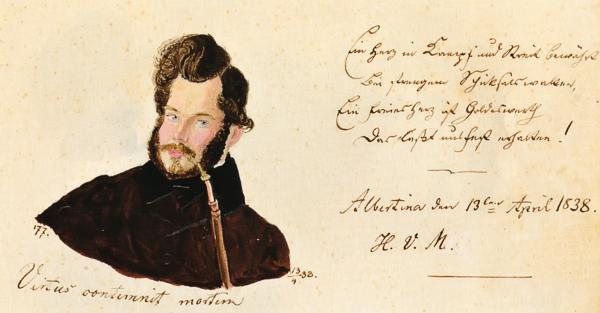 Ein Herz in Kampf und Streit bewährt
Bei strengem Schiksalswalten,
Ein freies Herz ist Goldeswerth
Das laßt uns fest erhalten!
Albertina den 13ten April 1838.
H. v. M.
77.
13/4 38.
Virtus contemnit mortem